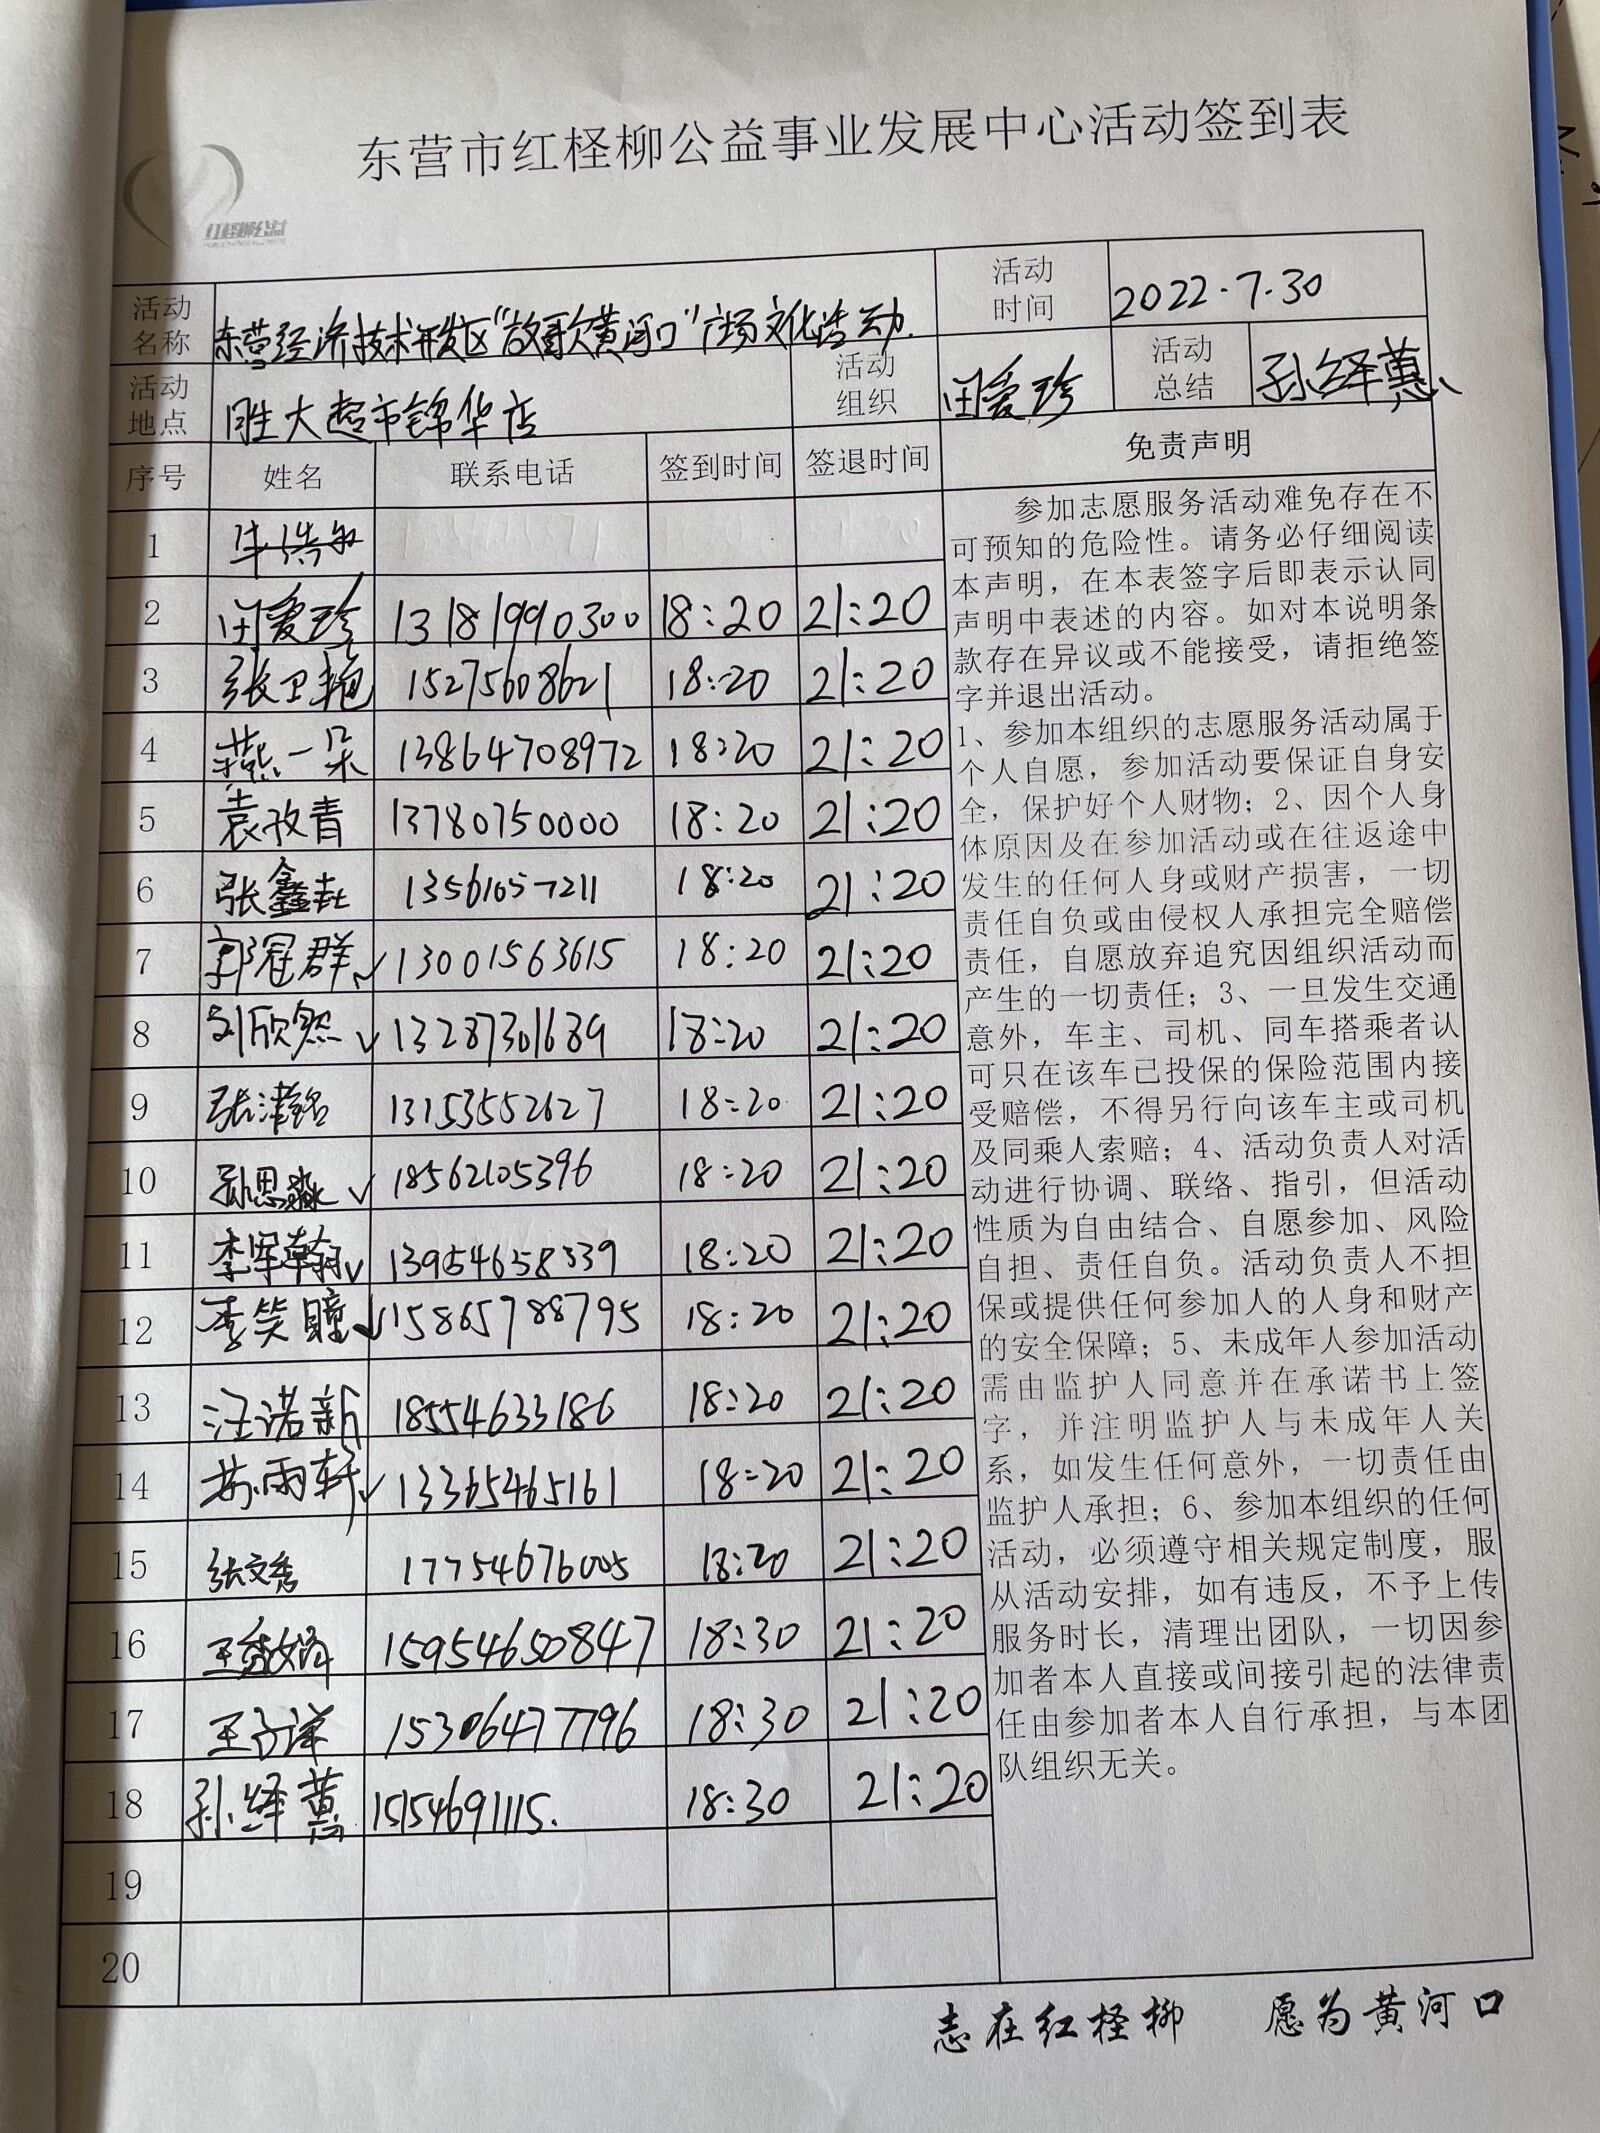 东营市红柽柳公益事业发展中心活动签到表
红柽柳公益
活动名称 东营经济技术开发区“放歌黄河口”广场文化活动. 活动时间 2022.7.30
活动地点 胜大超市锦华店 活动组织 田爱珍 活动总结 孙绎蕙
序号 姓名 联系电话 签到时间 签退时间 免责声明
1
2 田爱珍 13181990300 18:20 21:20
3 张卫艳 15275608621 18:20 21:20
4 燕一朵 13864708972 18:20 21:20
5 袁孜青 13780750000 18:20 21:20
6 张鑫垚 13561057211 18:20 21:20
7 郭冠群√ 13001563615 18:20 21:20
8 刘欣然√ 13287301689 18:20 21:20
9 张津铭 13153552627 18:20 21:20
10 孙思淼√ 18562105396 18:20 21:20
11 李军翰√ 13954658339 18:20 21:20
12 李笑瞳√ 15865788795 18:20 21:20
13 汪诺新 18554633186 18:20 21:20
14 苏雨轩√ 13365465161 18:20 21:20
15 张文秀 17754676005 18:20 21:20
16 15954650847 18:30 21:20
17 王子洋 15306477796 18:30 21:20
18 孙绎蕙 15154691115. 18:30 21:20
19
20
参加志愿服务活动难免存在不
可预知的危险性。请务必仔细阅读
本声明，在本表签字后即表示认同
声明中表述的内容。如对本说明条
款存在异议或不能接受，请拒绝签
字并退出活动。
1、参加本组织的志愿服务活动属于
个人自愿，参加活动要保证自身安
全，保护好个人财物；2、因个人身
体原因及在参加活动或在往返途中
发生的任何人身或财产损害，一切
责任自负或由侵权人承担完全赔偿
责任，自愿放弃追究因组织活动而
产生的一切责任；3、一旦发生交通
意外，车主、司机、同车搭乘者认
可只在该车已投保的保险范围内接
受赔偿，不得另行向该车主或司机
及同乘人索赔；4、活动负责人对活
动进行协调、联络、指引，但活动
性质为自由结合、自愿参加、风险
自担、责任自负。活动负责人不担
保或提供任何参加人的人身和财产
的安全保障；5、未成年人参加活动
需由监护人同意并在承诺书上签
字，并注明监护人与未成年人关
系，如发生任何意外，一切责任由
监护人承担；6、参加本组织的任何
活动，必须遵守相关规定制度，服
从活动安排，如有违反，不予上传
服务时长，清理出团队，一切因参
加者本人直接或间接引起的法律责
任由参加者本人自行承担，与本团
队组织无关。
志在红柽柳 愿为黄河口